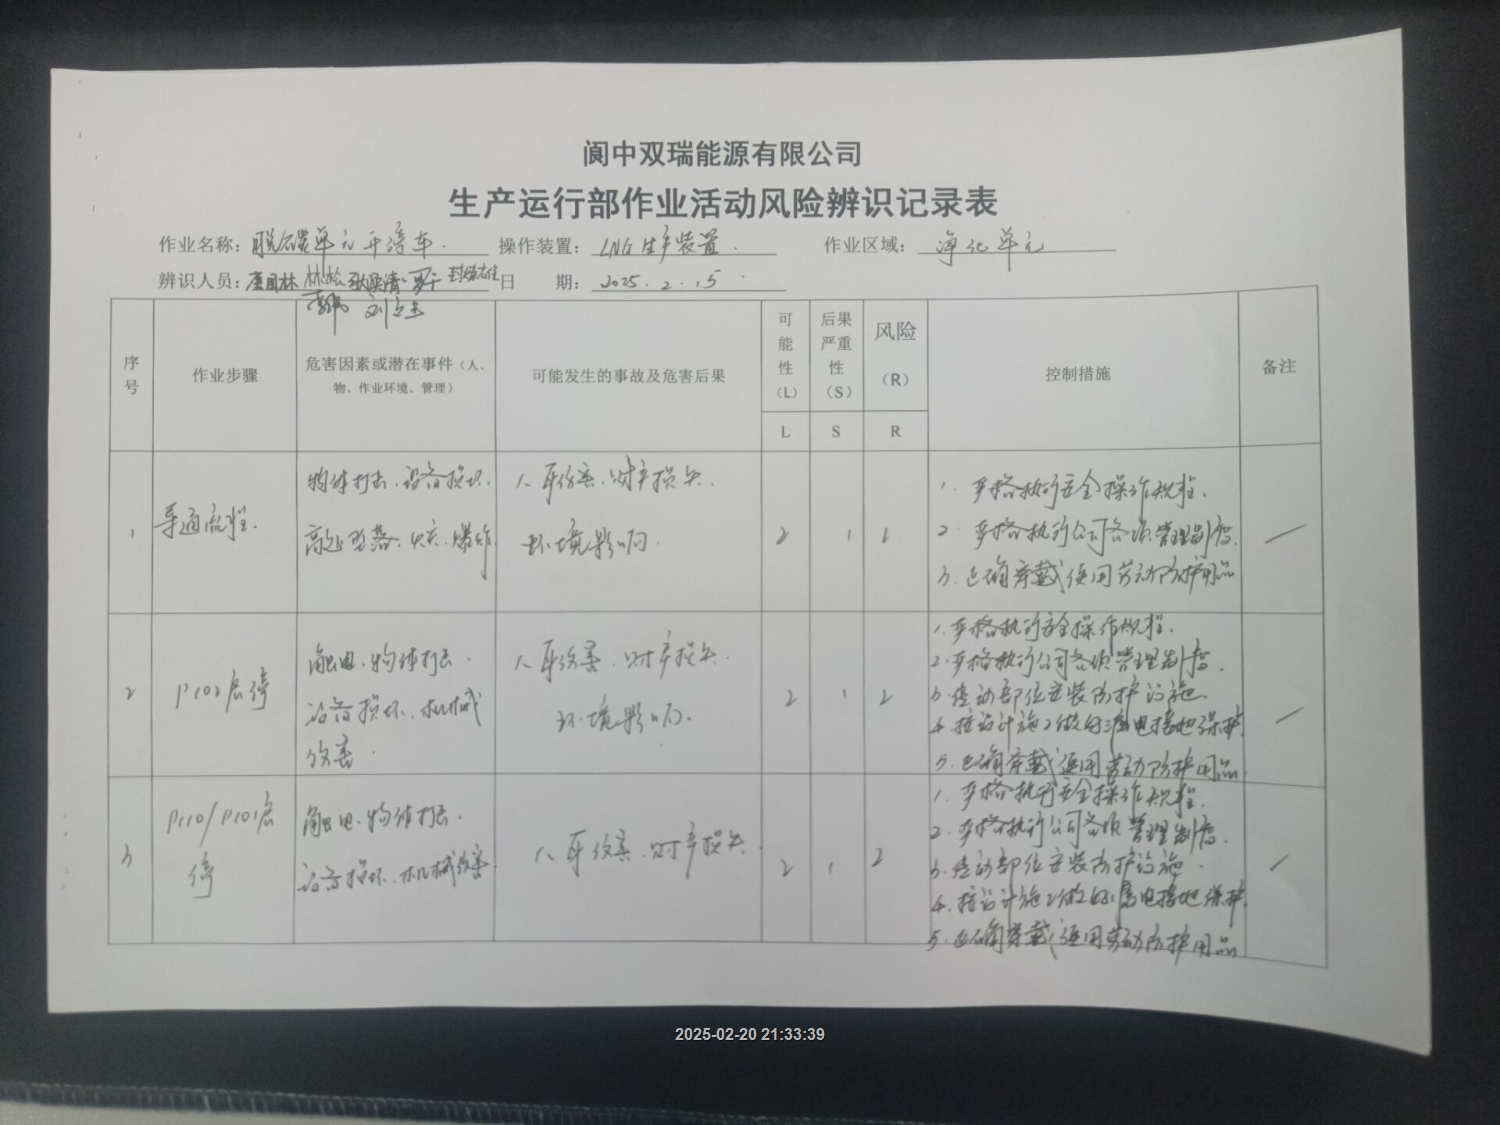 阆中双瑞能源有限公司
生产运行部作业活动风险辨识记录表
作业名称：脱碳单元开停车. 操作装置：LNG生产装置. 作业区域：净化单元
辨识人员： 林松 日 期：2025.2.15
序号 作业步骤 危害因素或潜在事件（人、物、作业环境、管理） 可能发生的事故及危害后果 可能性（L） 后果严重性（S） 风险（R） 控制措施 备注
L S R
1 导通流程. 物体打击、设备损坏.
高处坠落、火灾、爆炸
人员伤害、财产损失.
环境影响. 2 1
1. 严格执行安全操作规程.
2. 严格执行公司各项管理制度.
3. 正确穿戴使用劳动防护用品
2 P102启停 触电、物体打击.
设备损坏、机械
伤害.
人员伤害、财产损失.
环境影响. 2 1 2
1. 严格执行安全操作规程.
2. 严格执行公司各项管理制度.
3. 传动部位安装防护设施.
4. 按设计施工做好漏电接地保护.
5. 正确穿戴使用劳动防护用品
3 P110/P101启
停
触电、物体打击.
设备损坏、机械伤害
人员伤害、财产损失. 2 1 2
1. 严格执行安全操作规程.
2. 严格执行公司各项管理制度.
3. 传动部位安装防护设施.
4. 按设计施工做好漏电接地保护.
5. 正确穿戴使用劳动防护用品
2025-02-20 21:33:39